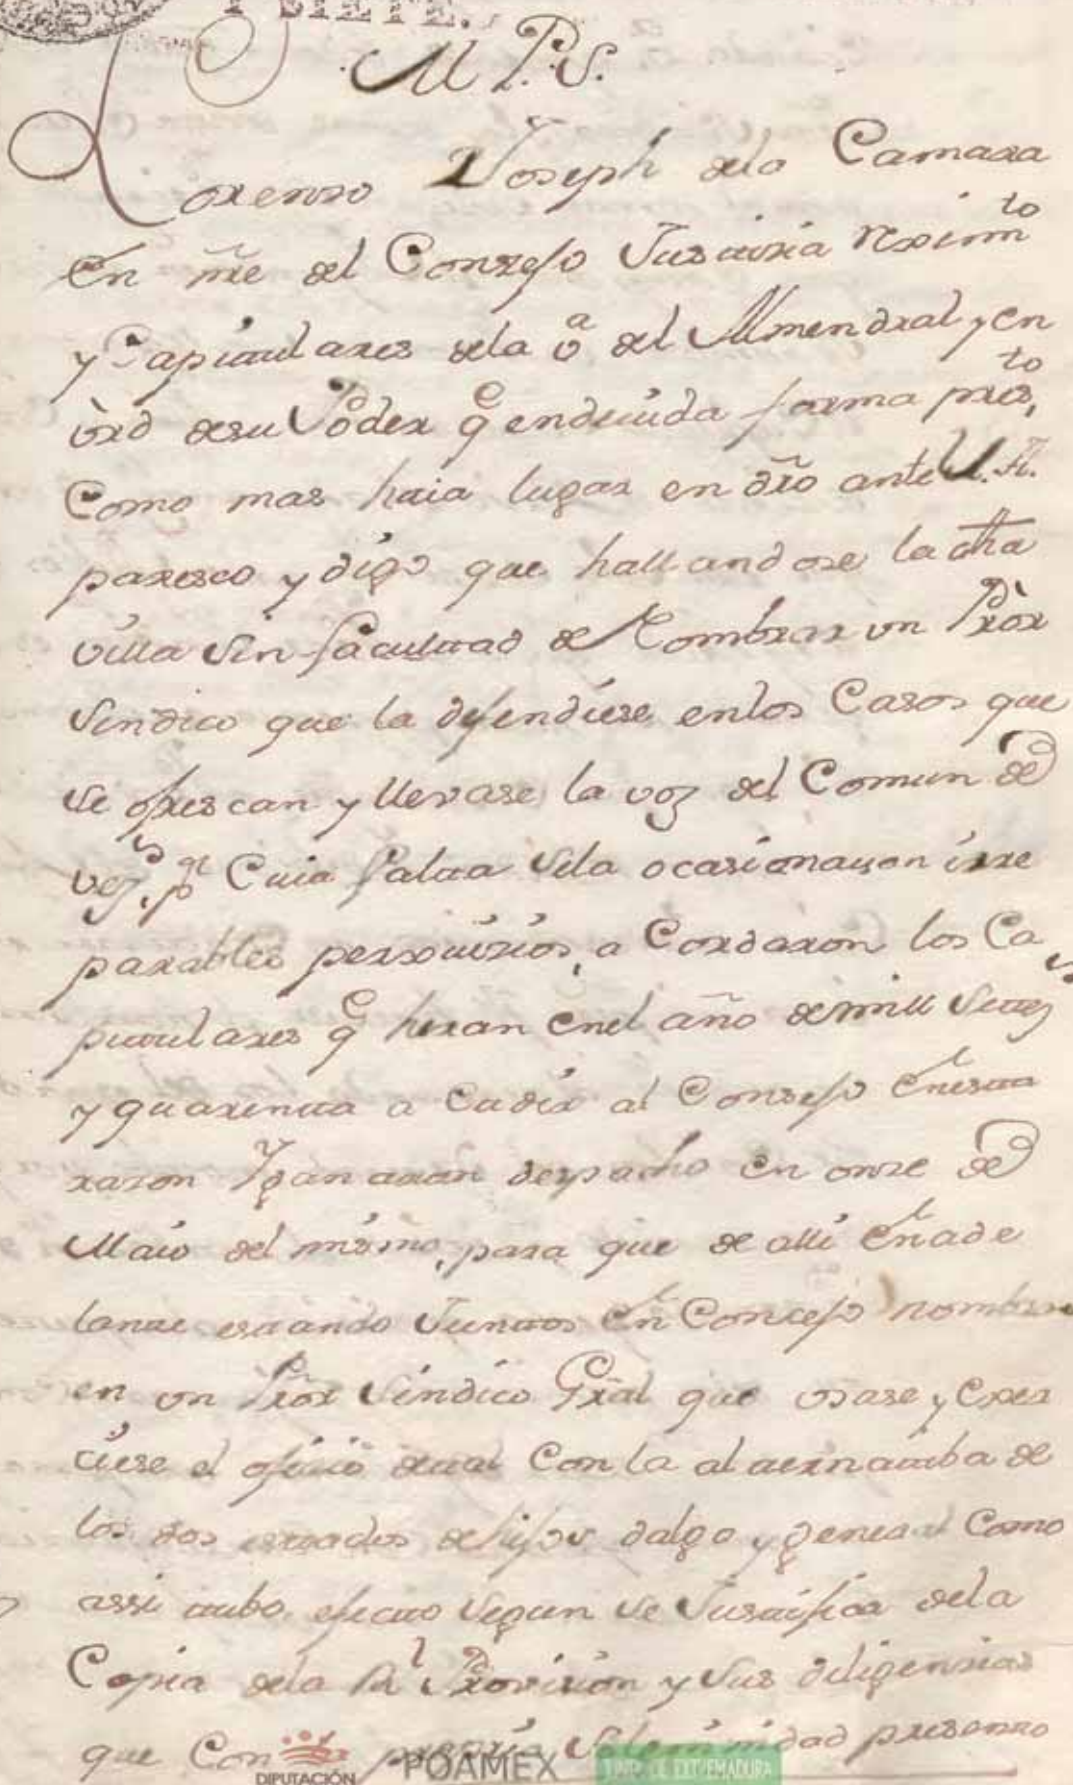 Y SIETE.
M. P. S.
Lorenzo Joseph dela Camara
En nre del Consejo Justicia Reximto
y Capitulares dela va del Almendral, y en
vrd desu Poder q endeuida forma presto,
Como mas haia lugar en dro ante V.A.
paresco y digo que hallandose la dha
villa sin facultad de Nombrar un Pror
Sindico que la defendiese enlos Casos que
se ofrescan y llevase la voz del Comun de
vezs, pr Cuia falta sela ocasionauan irre
parables perxuicios, a Cordaron los Ca
pitulares q heran enel año demill setezs
y quarenta a Cudir al Consejo Enesta
razon Y ganaron despacho en onze de
Maio del mismo, para que de alli Enade
lante estando Juntos En Concejo nombras
en un Pror Sindico Gral que usase y Exer
ciese el oficio de tal Con la alternatiba de
los dos estados de hijos dalgo y general Como
assi tubo efecto segun se Justifica dela
Copia dela Rl Provision y sus diligenzias
que Con solemnidad presento
DIPUTACIÓN POAMEX JUNTA DE EXTREMADURA